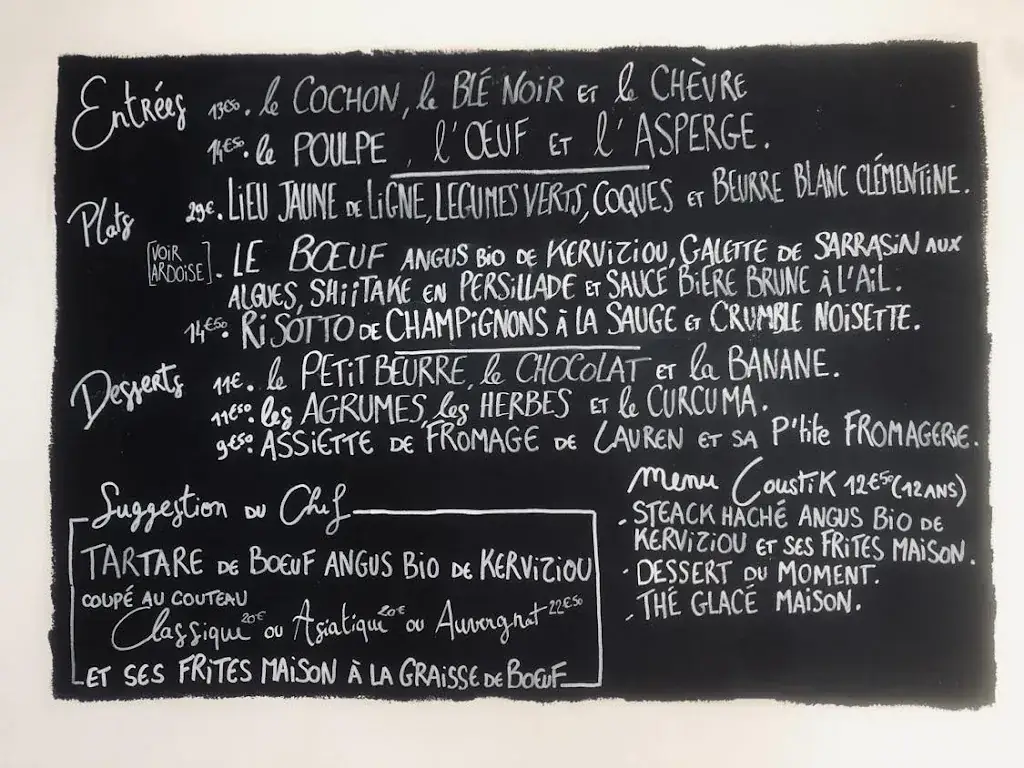 Entrées 13€50. le COCHON, le BLÉ NOIR ET le CHÈVRE
14€50. le POULPE, l'ŒUF ET l'ASPERGE.
Plats 29€. LIEU JAUNE DE LIGNE, LEGUMES VERTS, COQUES ET BEURRE BLANC CLÉMENTINE.
[VOIR ARDOISE]. LE BOEUF ANGUS BIO DE KERVIZIOU, GALETTE DE SARRASIN AUX
ALGUES, SHIITAKE EN PERSILLADE ET SAUCE BIÈRE BRUNE À L'AIL.
14€50. RISOTTO DE CHAMPIGNONS À LA SAUGE ET CRUMBLE NOISETTE.
Desserts 11€. le PETIT BEURRE, le CHOCOLAT ET la BANANE.
11€50. les AGRUMES, les HERBES ET le CURCUMA.
9€50. ASSIETTE DE FROMAGE DE LAUREN ET SA P'tite FROMAGERIE.
Suggestion DU Chef
TARTARE DE BOEUF ANGUS BIO DE KERVIZIOU
COUPÉ AU COUTEAU
Classique 20€ ou Asiatique 20€ ou Auvergnat 22€50
ET SES FRITES MAISON À LA GRAISSE DE BOEUF
Menu CoustiK 12€50 (12 ANS)
. STEACK HACHÉ ANGUS BIO DE
KERVIZIOU ET SES FRITES MAISON.
. DESSERT DU MOMENT.
. THÉ GLACÉ MAISON.